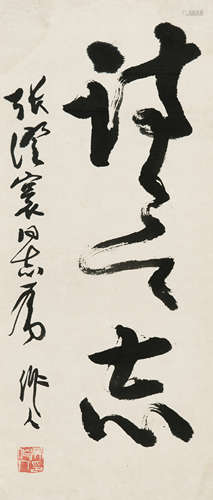 诗言志
张澄寰同志属
作人